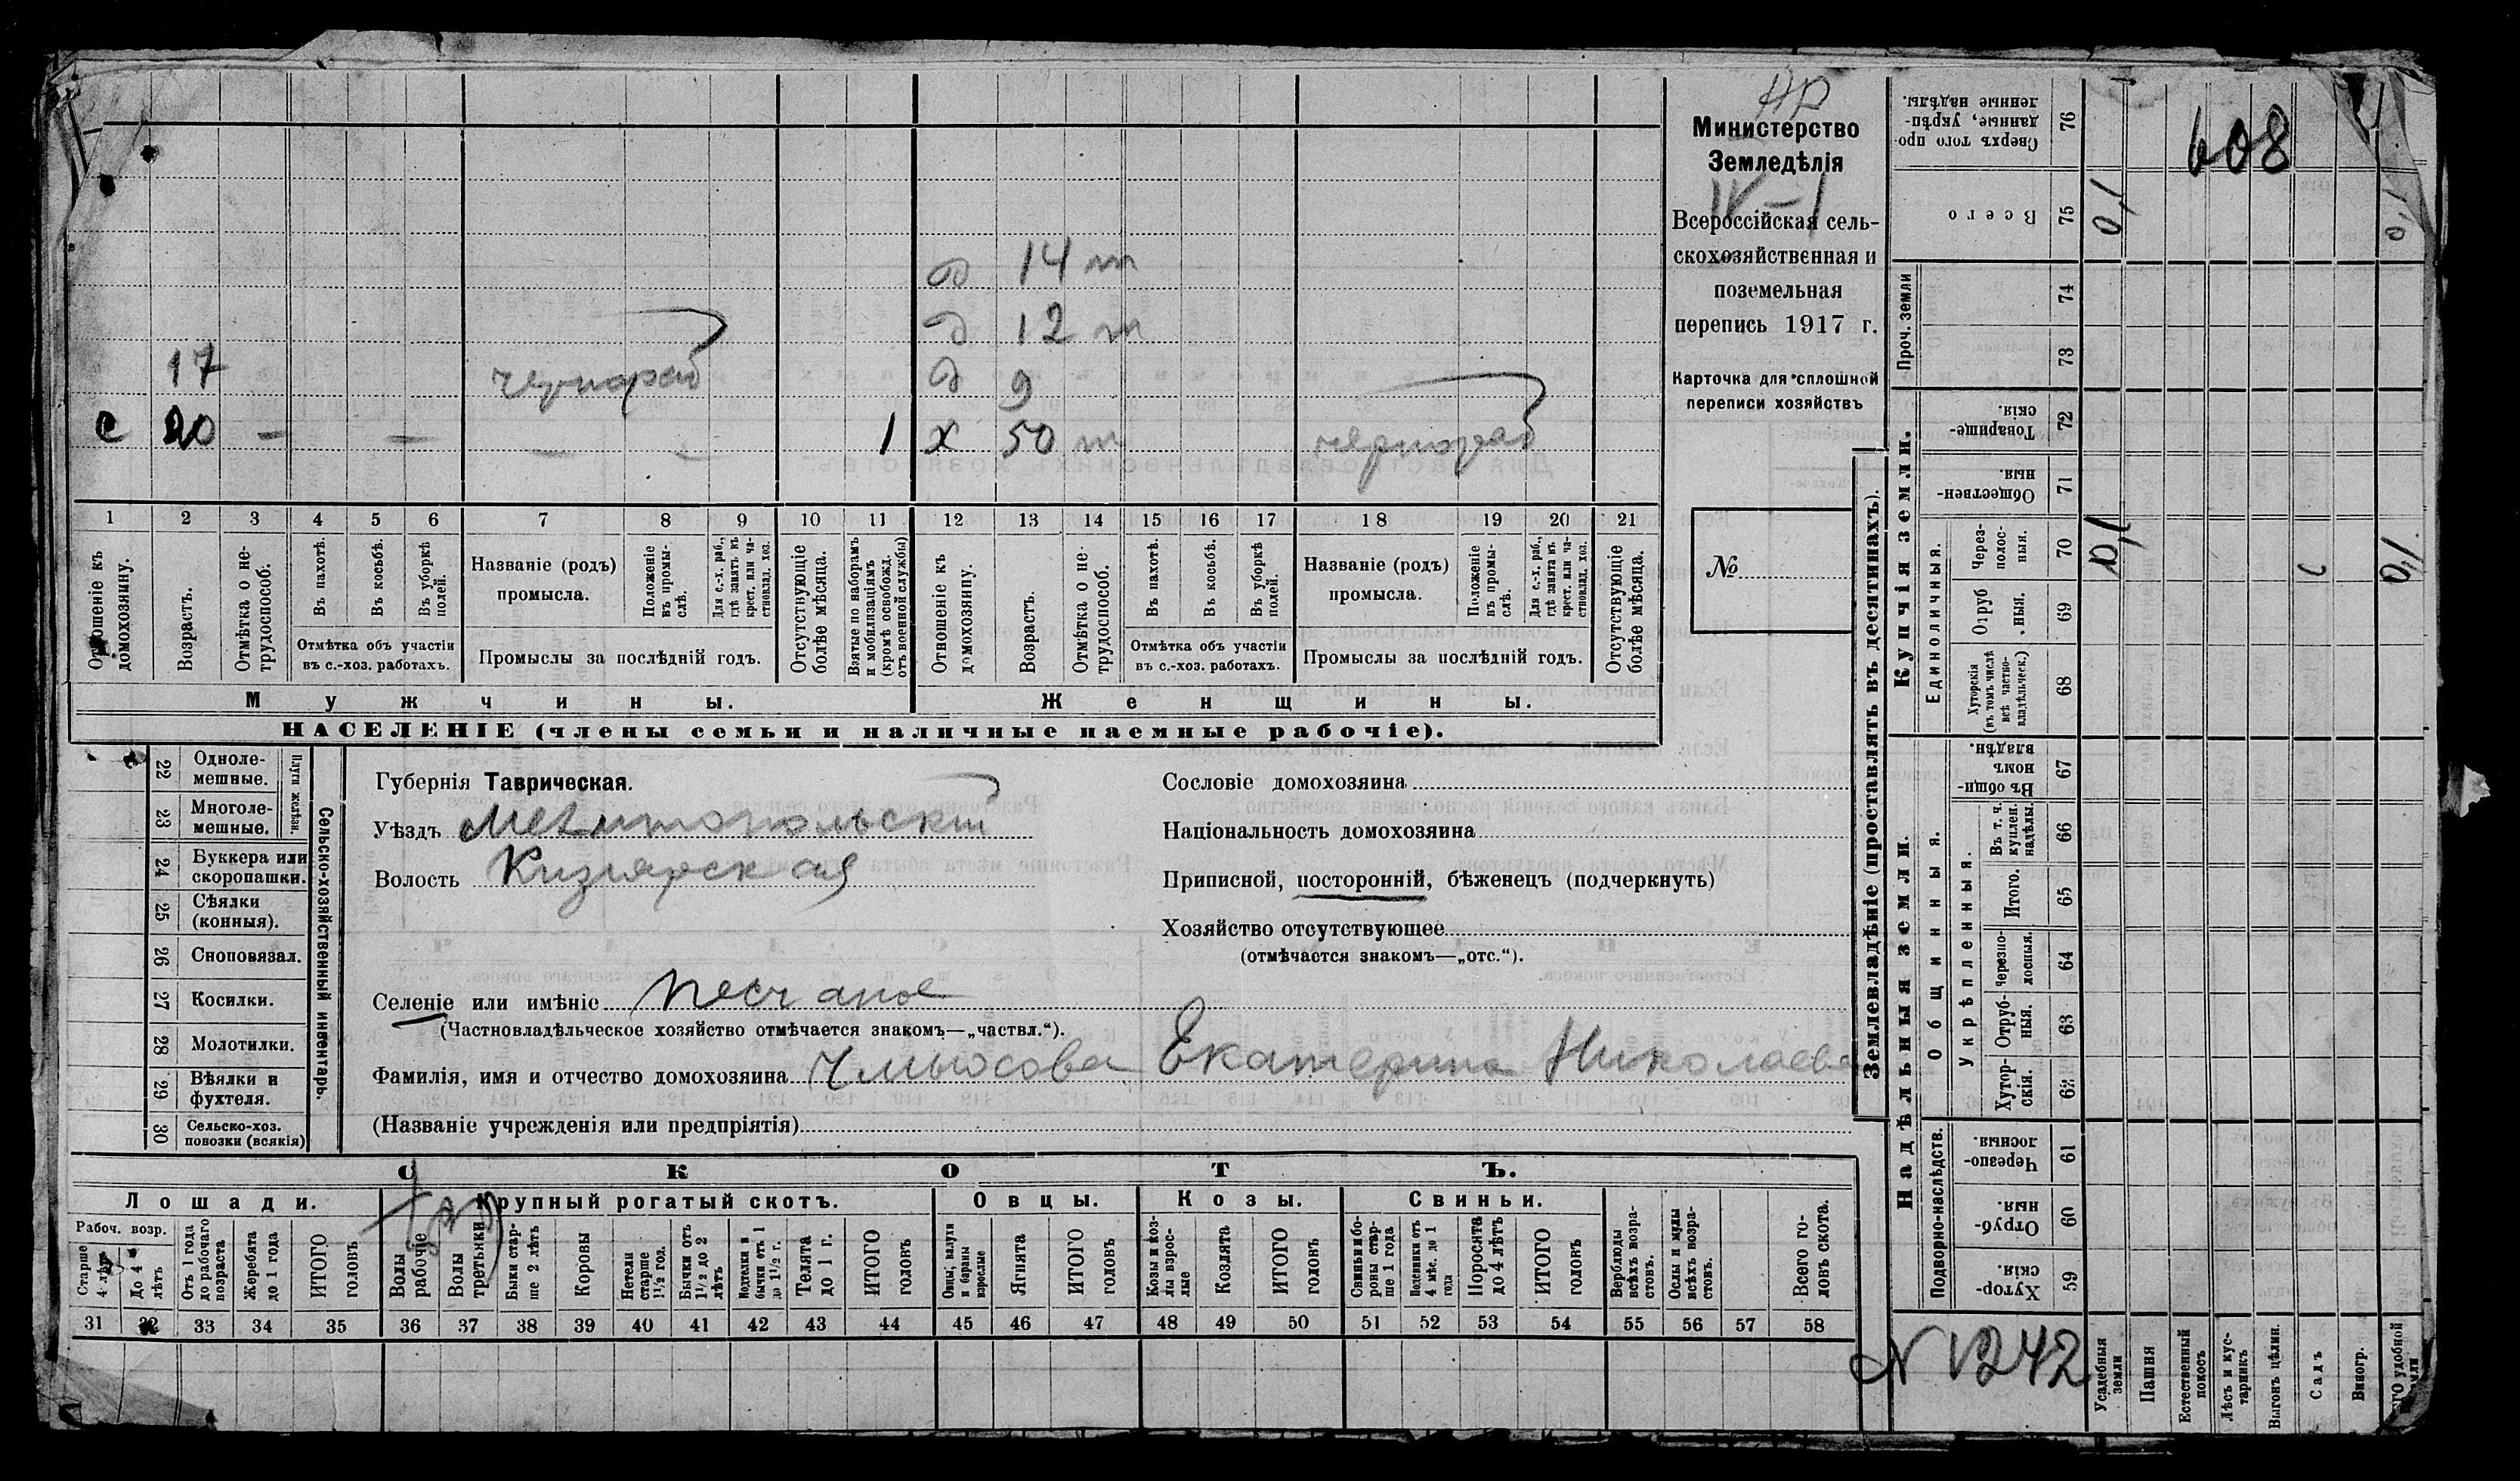 АР
Министерство
Земледѣлія
IV-1
Всероссійская сель-
скохозяйственная и
поземельная
перепись 1917 г.
Карточка для сплошной
переписи хозяйствъ
№
д 14 т
д 12 т
17 чернораб д 9
с 20 — — — — 1 х 50 т чернораб
1 2 3 4 5 6 7 8 9 10 11 12 13 14 15 16 17 18 19 20 21
Отношеніе къ домохозяину.
Возрастъ.
Отмѣтка о не-трудоспособ.
Въ пахотѣ.
Въ косьбѣ.
Въ уборкѣ полей.
Названіе (родъ) промысла.
Положеніе въ промы-слѣ.
Для с.-х. раб., гдѣ занятъ въ крест. или ча-стновлад. хоз.
Отсутствующіе болѣе мѣсяца.
Взятые по наборамъ и мобилизаціямъ (кромѣ освобожд. отъ военной службы)
Отношеніе къ домохозяину.
Возрастъ.
Отмѣтка о не-трудоспособ.
Въ пахотѣ.
Въ косьбѣ.
Въ уборкѣ полей.
Названіе (родъ) промысла.
Положеніе въ промы-слѣ.
Для с.-х. раб., гдѣ занята въ крест. или ча-стновлад. хоз.
Отсутствующіе болѣе мѣсяца.
Отмѣтка объ участіи въ с.-хоз. работахъ.
Промыслы за послѣдній годъ.
Отмѣтка объ участіи въ с.-хоз. работахъ.
Промыслы за послѣдній годъ.
Мужчины.
Женщины.
НАСЕЛЕНІЕ (члены семьи и наличные наемные рабочіе).
Сельско-хозяйственный инвентарь.
Плуги желѣзн.
22 Одноле-мешные.
23 Многоле-мешные.
24 Буккера или скоропашки.
25 Сѣялки (конныя).
26 Сноповязал.
27 Косилки.
28 Молотилки.
29 Вѣялки и фухтеля.
30 Сельско-хоз. повозки (всякія)
Губернія Таврическая.
Уѣздъ Мелитопольскій
Волость Кизіярская
Сословіе домохозяина
Національность домохозяина
Приписной, посторонній, бѣженецъ (подчеркнуть)
Хозяйство отсутствующее
(отмѣчается знакомъ—„отс.“).
Селеніе или имѣніе Песчаное
(Частновладѣльческое хозяйство отмѣчается знакомъ—„частвл.“).
Фамилія, имя и отчество домохозяина Екатерина Николаева
(Названіе учрежденія или предпріятія)
СКОТЪ.
Лошади. Крупный рогатый скотъ. Овцы. Козы. Свиньи.
Рабоч. возр.
Старше 4 лѣтъ
До 4 лѣтъ
Отъ 1 года до рабочаго возраста
Жеребята до 1 года
ИТОГО головъ
Волы рабочіе
Волы третьяки
Быки стар-ше 2 лѣтъ
Коровы
Нетели старше 1½ год.
Бычки отъ 1½ до 2 лѣтъ
Подтелки и бычки отъ 1 до 1½ г.
Телята до 1 г.
ИТОГО головъ
Овцы, валухи и бараны взрослые
Ягнята
ИТОГО головъ
Козы и коз-лы взрос-лые
Козлята
ИТОГО головъ
Свиньи и бо-ровы стар-ше 1 года
Подсвинки отъ 4 мѣс. до 1 года
Поросята до 4 лѣтъ
ИТОГО головъ
Верблюды всѣхъ возра-стовъ.
Ослы и мулы всѣхъ возра-стовъ.
Всего го-ловъ скота.
31 32 33 34 35 36 37 38 39 40 41 42 43 44 45 46 47 48 49 50 51 52 53 54 55 56 57 58
Землевладѣніе (проставлять въ десятинахъ).
Надѣльныя земли.
Купчія земли.
Проч. земли
Сверхъ того про-данные, укрѣп-ленные надѣлы. 76
Всего 75
74
73
Товарище-скія. 72
Обществен-ныя 71
Единоличныя.
Через-полос-ныя. 70
Отруб-ныя. 69
Хуторскія (въ томъ числѣ всѣ частно-владѣльческ.) 68
Въ общи-номъ владѣн. 67
Общинныя.
Укрѣпленныя.
Въ т. ч. куплен. надѣлы. 66
Итого. 65
Черезпо-лосныя. 64
Отруб-ныя. 63
Хутор-скія. 62
Подворно-наслѣдств.
Черезпо-лосныя. 61
Отруб-ныя 60
Хутор-скія. 59
Усадебныя земли
Пашня
Естественный покосъ
Лѣсъ и кус-тарникъ
Выгонъ цѣлин.
Садъ
Виногр.
удобной
608
N 1242